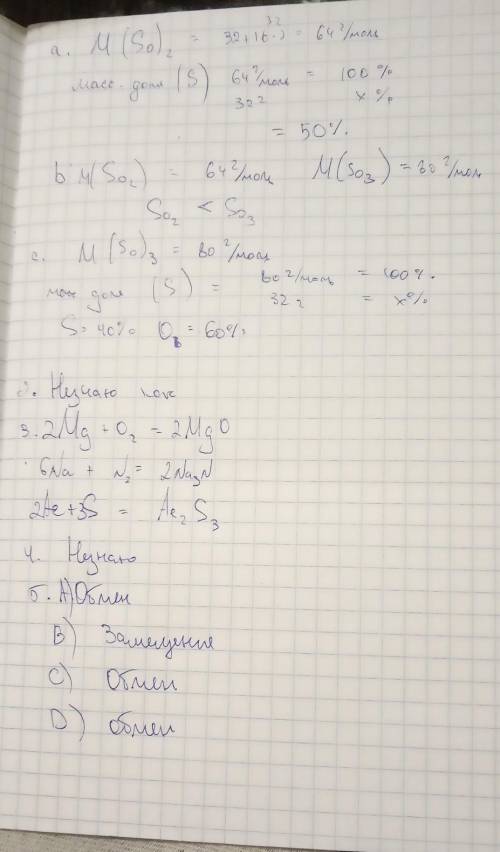 a. M (So)₂ = 32+16·2 = 64 г/моль
32
масс. доля (S) 64 г/моль = 100 %
32 г x %
= 50%.
b. M(So₂) = 64 г/моль M(So₃) = 80 г/моль
So₂ < So₃
c. M (So)₃ = 80 г/моль
масс доля (S) = 80 г/моль = 100%.
32 г = x%
S = 40% O₃ = 60%
2. Незнаю как
3. 2Mg + O₂ = 2MgO
6Na + N₂ = 2Na₃N
2Ae+3S = Ae₂S₃
4. Незнаю
5. A) Обмен
B) Замещение
C) Обмен
D) обмен